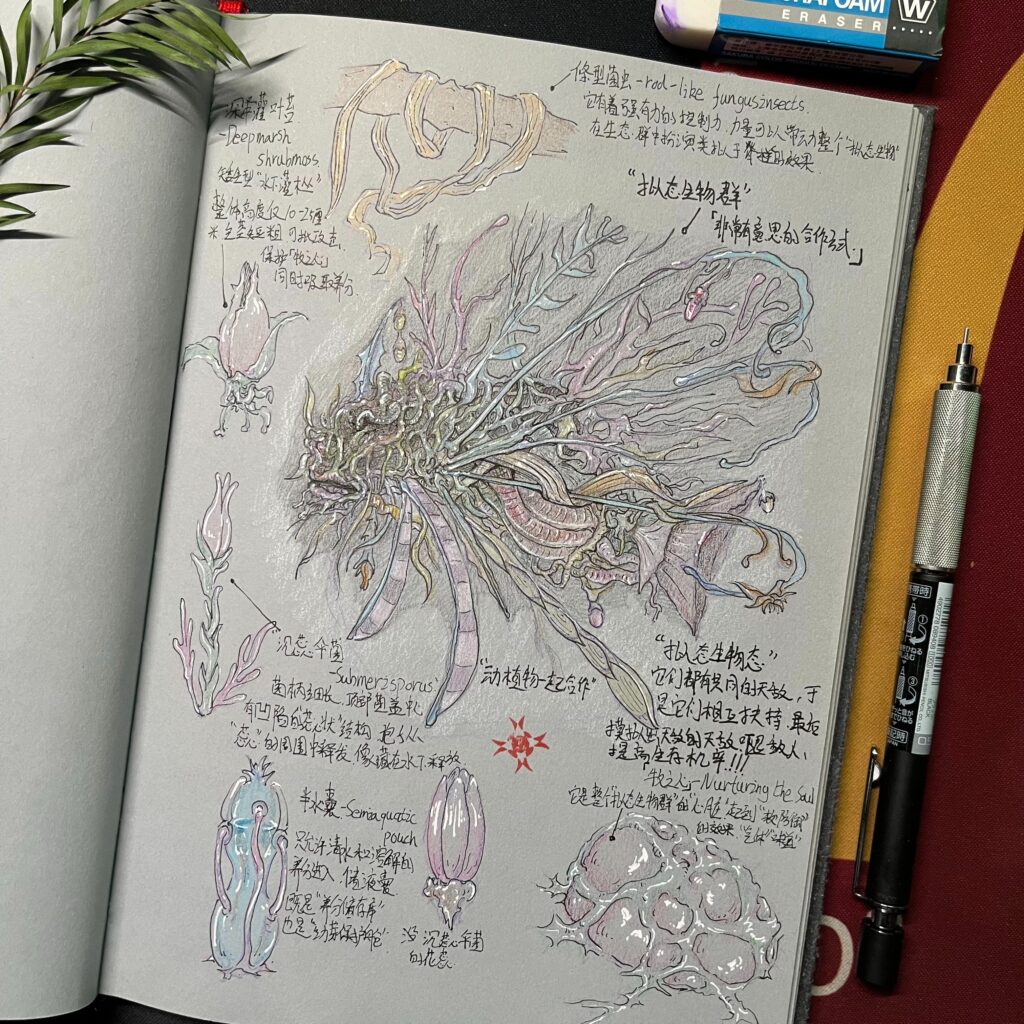 深沼灌叶苔
-Deepmarsh
shrubmoss
矮生型"水下灌木丛"
整体高度仅10-25厘
米 茎短粗 可
保护「牧之心」
同时吸取养分.
條型菌虫-rod-like fungusinsects.
它有着强有力的控制力,力量可以带动整个"拟态生物"
在生态群中扮演类似于脊椎的效果.
"拟态生物群"
「非常有意思的合作方式.」
沉蕊伞菌
-Submerzsporus
菌柄细长,顶部菌盖中心
有凹陷的"蕊状"结构 孢子从
"蕊"的周围中释放,像藏在水下 释放
"动植物一起合作"
"拟态生物态"
它们都有共同的天敌,于
是它们相互扶持,最后
模拟出天敌的天敌.吓退敌人,
提高生存机率!!!
牧之心-Nurturing the Soul
它是整个"拟态生物群"的"心脏",起到
的效果.
半水囊-Semiaquatic
pouch
只允许清水和溶解的
养分进入,储液囊
既是"养分储存库"
也是"幼芽保护舱"
沉蕊伞菌
的花蕊.
FOAM
ERASER
W